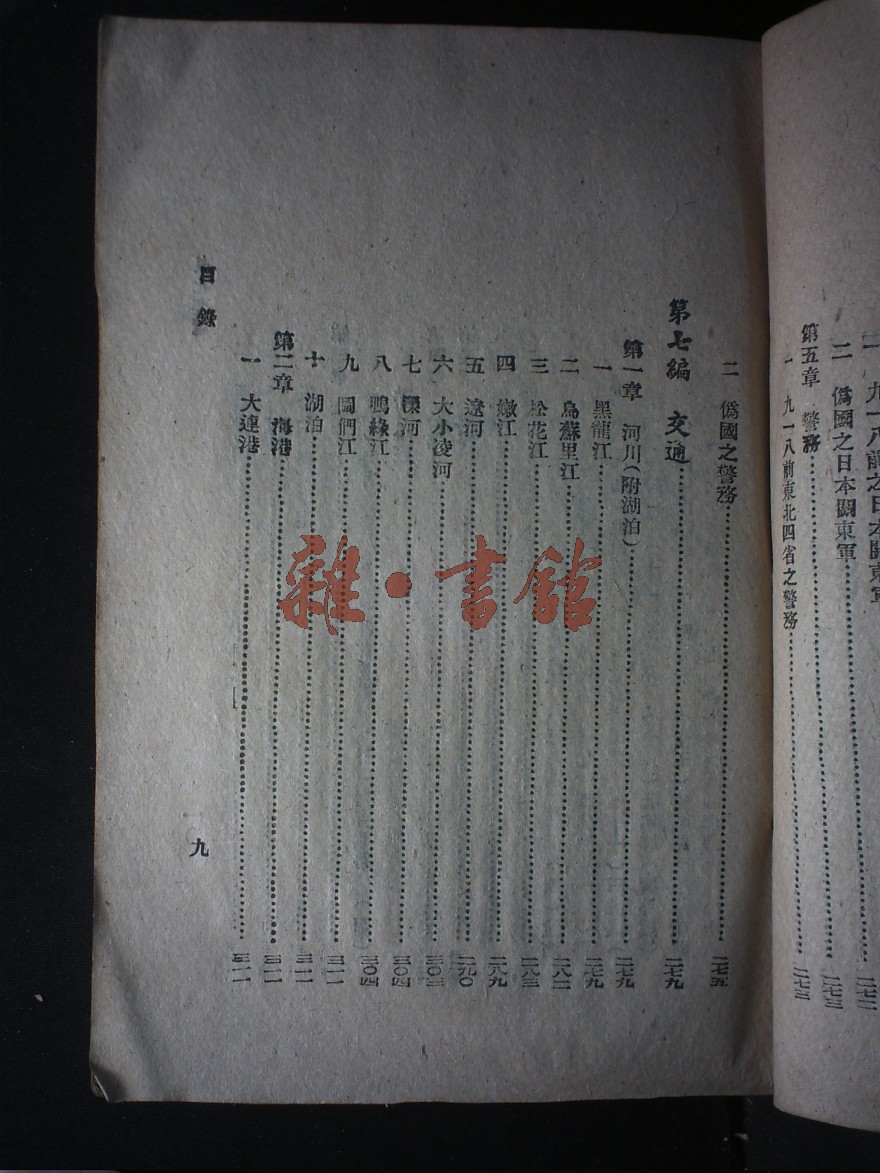 九一八前之日本關東軍⋯⋯二七二
二 僞國之日本關東軍⋯⋯二七三
第五章 警務
一 九一八前東北四省之警務⋯⋯二七三
二 僞國之警務⋯⋯二七五
第七編 交通⋯⋯二七九
第一章 河川(附湖泊)⋯⋯二七九
一 黑龍江⋯⋯二七九
二 烏蘇里江⋯⋯二八二
三 松花江⋯⋯二八三
四 嫩江⋯⋯二八九
五 遼河⋯⋯二九〇
六 大小凌河⋯⋯三〇三
七 灤河⋯⋯三〇四
八 鴨綠江⋯⋯三〇四
九 圖們江⋯⋯三一一
十 湖泊⋯⋯三一一
第二章 海港⋯⋯三一一
一 大連港⋯⋯三一一
目錄
九
雜·書館